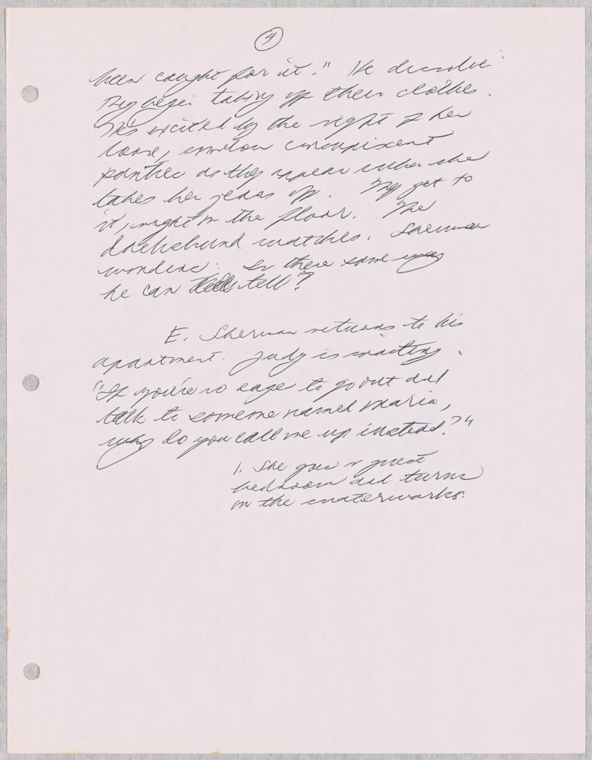 4
been caught for it." He dissolves.
They begin taking off their clothes.
He's excited by the sight of her
loose,
panties as they appear when she
takes her jeans off. They get to
it, right on the floor. The
dachshund watches. Sherman
wonders: Is there some way
he can tell?
E. Sherman returns to his
apartment. Judy is waiting.
"If you're so eager to go out and
talk to someone named Maria,
why do you call me up instead?"
1. She goes to guest
bedroom and turns
on the waterworks.